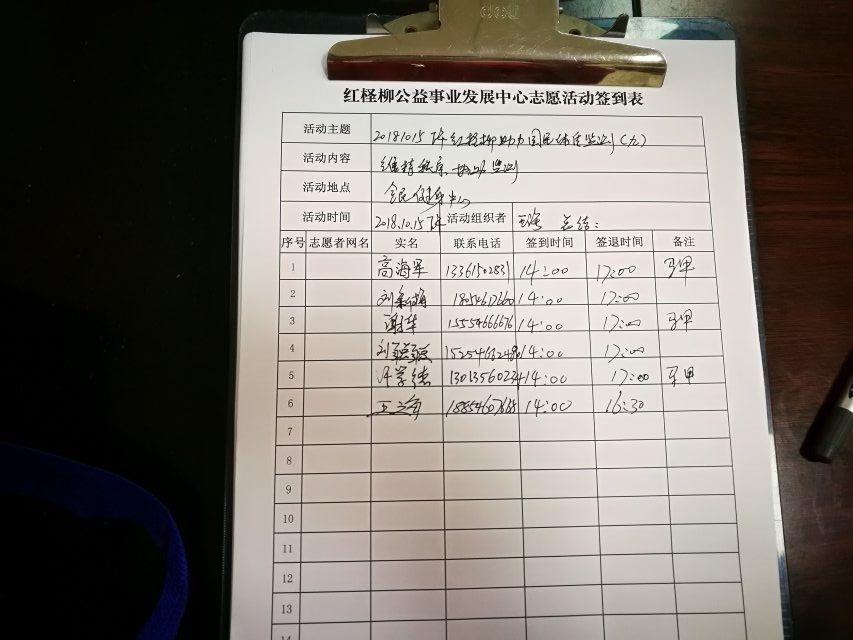 deli
红柽柳公益事业发展中心志愿活动签到表
活动主题 20181015下午红柽柳助力国民体质监测(九)
活动内容 维持秩序、协助监测
活动地点 全民健身中心
活动时间 2018.10.15下午 活动组织者 总结:
序号 志愿者网名 实名 联系电话 签到时间 签退时间 备注
1 高海军 13361502831 14:00 17:00 马甲
2 14:00 17:00
3 谢华 15554666676 14:00 17:00 马甲
4 14:00 17:00
5 许学德 14:00 17:00 马甲
6 14:00 16:30
7
8
9
10
11
12
13
14